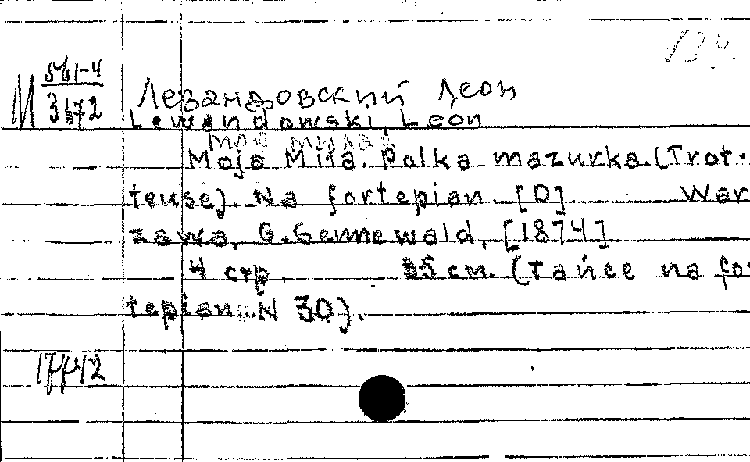 М 561-4
3172
Левандовский Леон
Lewandowski, Leon
Моя милая
Moja Miła. Polka mazurka. (Trot-
teuse). Na fortepian. [O] War
zawa, G. Sennewald, [1874]
4 стр. 25 см. (Tańce na for
tepian N 30).